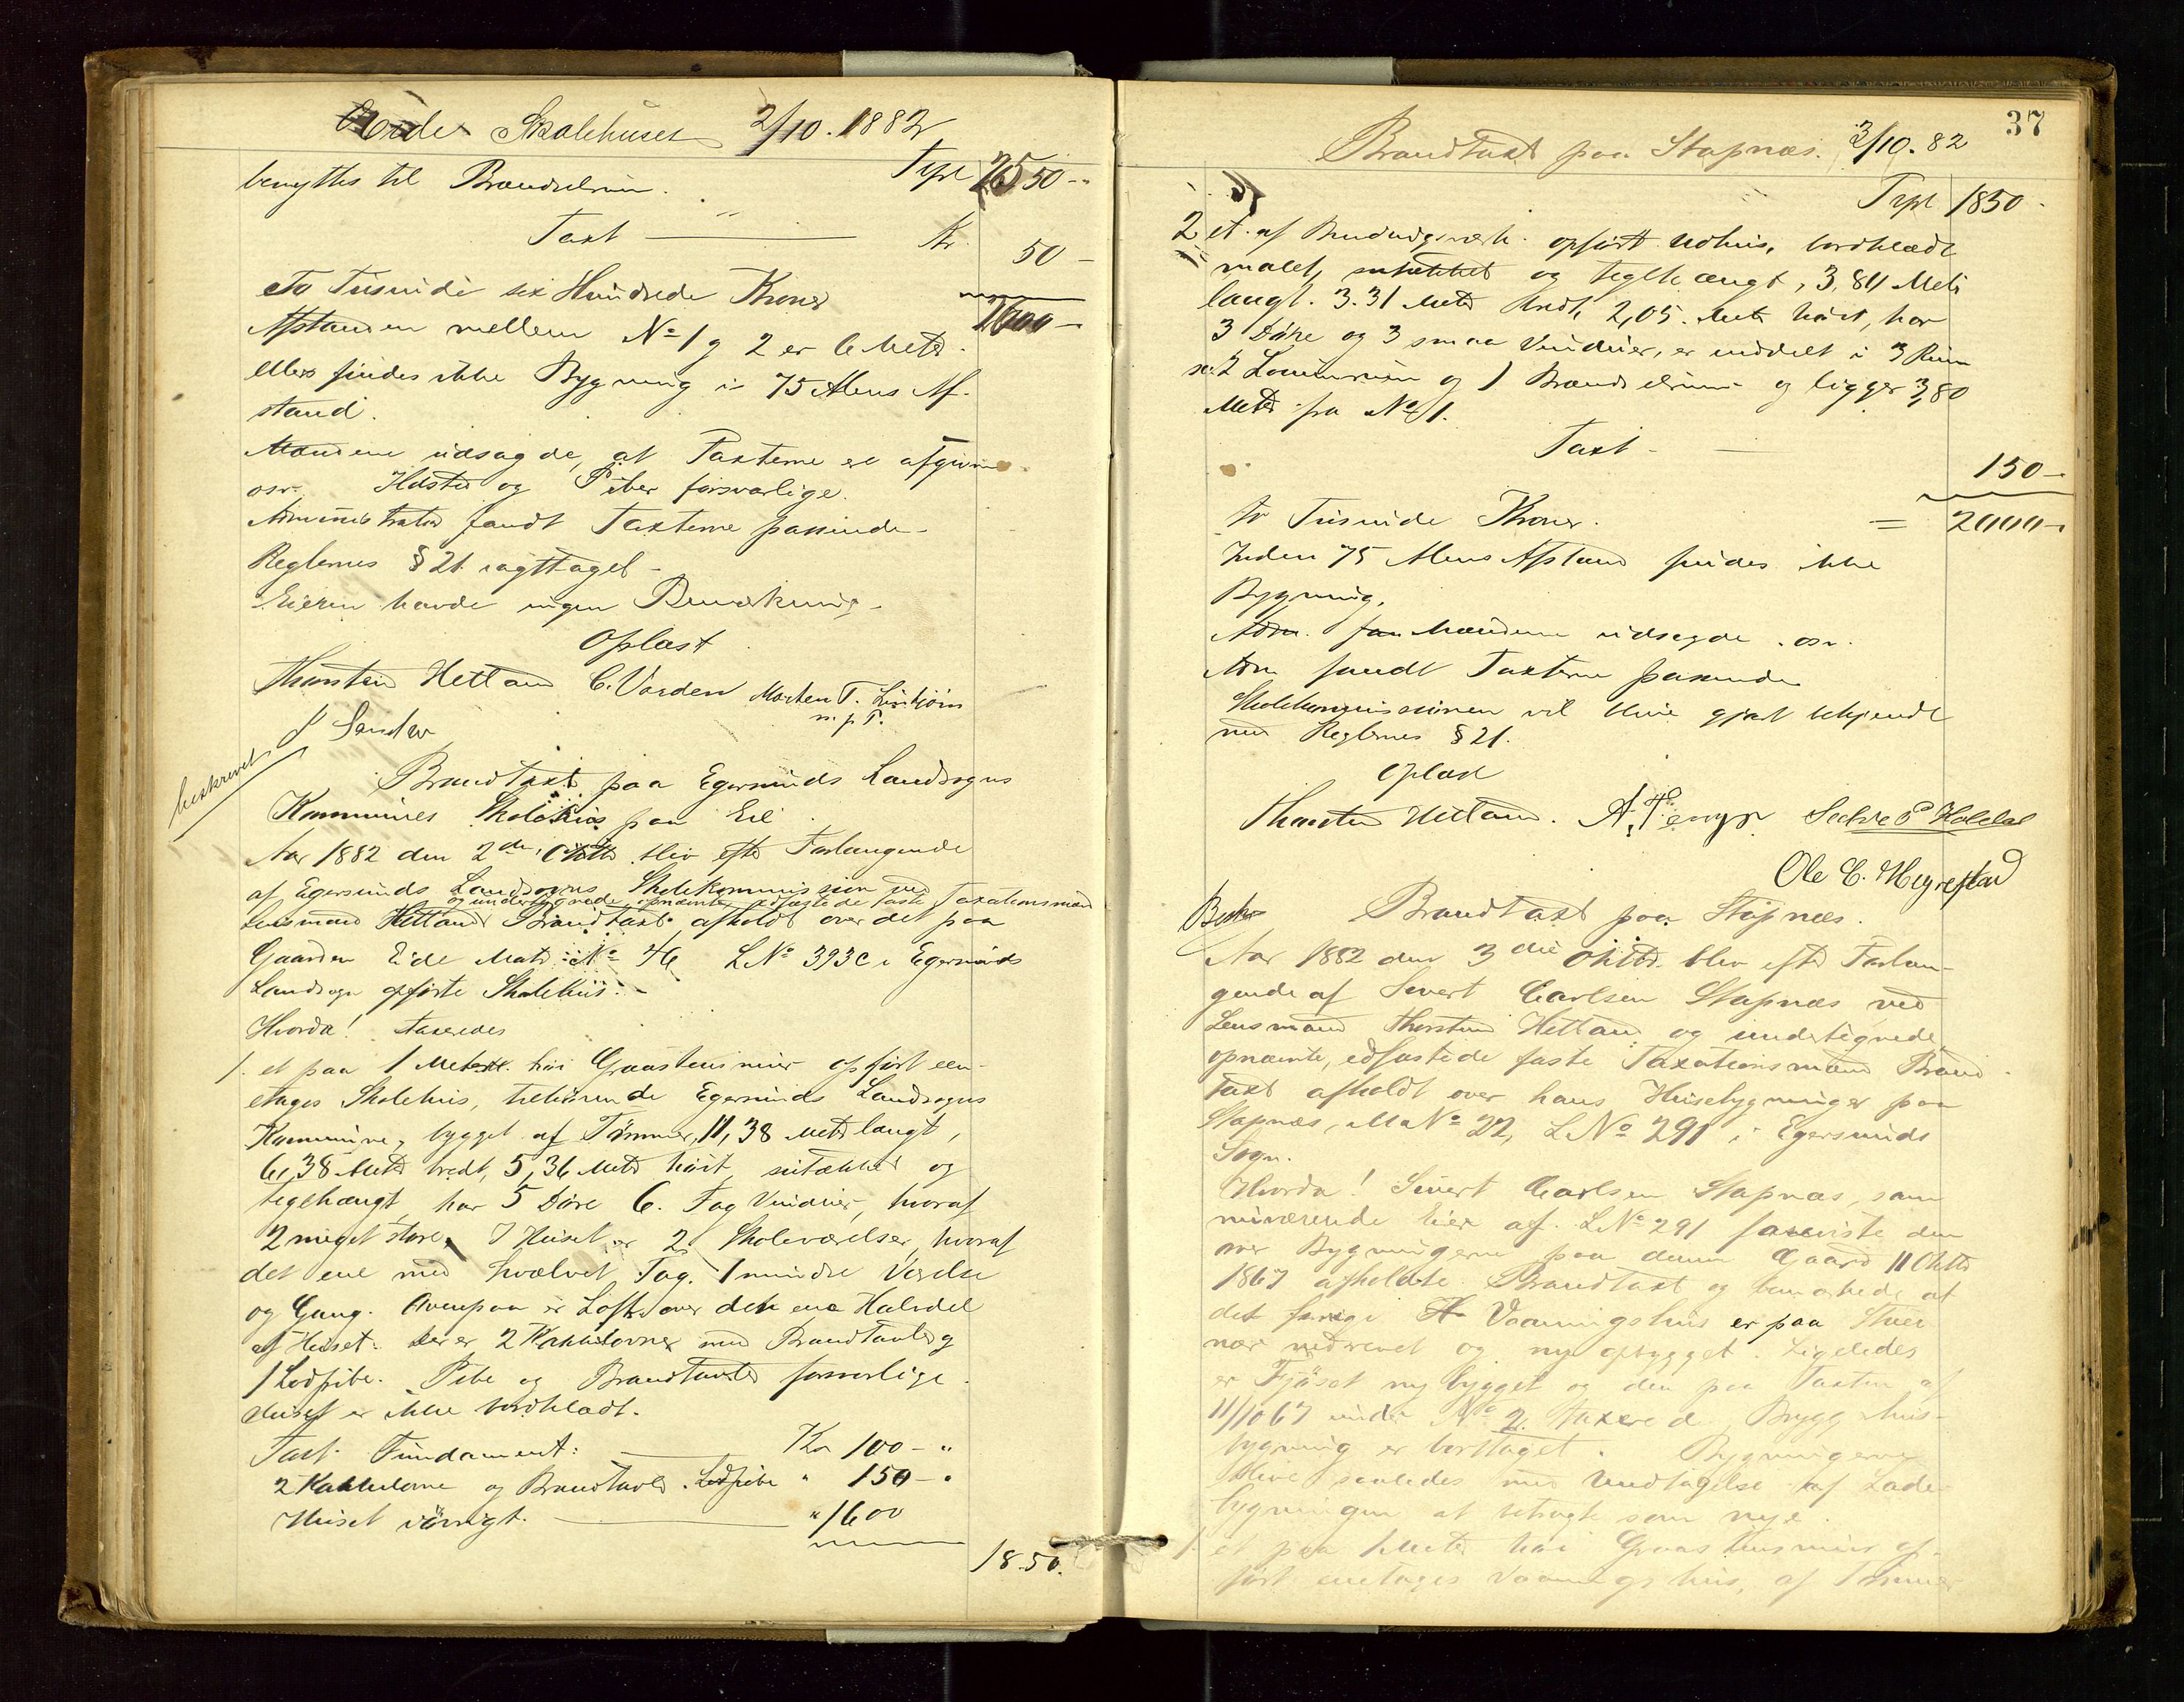 Skolehuset 2/10. 1882
benyttes til Brændselrum. Trpt 2550 -
Taxt — Kr. 50 -
To Tusinde sex Hundrede Kroner 2600 -
Afstanden mellem No 1 og 2 er 6 Meter.
Ellers findes ikke Bygning i 75 Alens Af-
stand.
Mændene udsagde, at Taxterne ere afgivne
osv. Ildsted og Piber forsvarlige.
Administrator fandt Taxterne passende.
Reglernes § 21 iagttaget -
Eieren havde ingen Bemærkning.
Oplæst
Thorstein Hetland C. Varden Morten T.
m. p. P.
beskrevet
Brandtaxt paa Egersunds Landsogns
Kommunes Skolehus paa Eie
Aar 1882 den 2den Oktbr. blev efter Forlangende
af Egersunds Landsogns Skolekommission ved
og undertegnede opnævnte edfæstede faste Taxationsmænd
Lensmand Hetland Brandtaxt afholdt over det paa
Gaarden Eide Matr. No 46 LNo 393c i Egersunds
Landsogn opførte Skolehus. -
Hvorda! taxeredes
1. et paa 1 Meter høi Graastensmur opført een-
etages Skolehus, tilhørende Egersunds Landsogns
Kommune, bygget af Tømmer, 11,38 Meter langt,
6,38 Meter bredt, 5,36 Meter høit, sutækket og
teglhængt, har 5 Døre 6. Fag Vinduer, hvoraf
2 meget store. I Huset er 2 Skoleværelser, hvoraf
det ene med hvælvet Tag. 1 mindre Værelse
og Gang. Ovenpaa er Loft over den ene Halvdel
af Huset. Der er 2 Kakkelovne med Brandtavle og
1 Lodpibe. Pibe og Brandtavler forsvarlige.
Huset er ikke bordklædt.
Taxt. Fundament: — Kr 100 - "
2 Kakkelovne og Brandtavler. Lodpibe " 150 - "
Huset iøvrigt. — " 1600
1850.
37
Brandtaxt paa Stapnæs. 3/10. 82
Trpt 1850 -
2 et af Bindingsværk opført Udhus, bordklædt
malet, sutækket og teglhængt, 3,84 Meter
langt. 3.31 Meter bredt, 2,05. Meter høit, har
3 Døre og 3 smaa Vinduer, er inddelt i 3 Rum
sc: 2 Lonumrum og 1 Brændselrum og ligger 3,80
Meter fra No 1.
Taxt - 150 -
to Tusinde Kroner. = 2000 -
Inden 75 Alens Afstand findes ikke
Bygning.
Adm. fan Mændene udsagde osv.
Adm fandt Taxterne passende
Skolekommissionen vil blive gjort bekjendt
med Reglernes § 21.
Oplæst
Thorstein Hetland.
Ole C. Megrestad
Brandtaxt paa Stapnæs.
Aar 1882 den 3die Oktbr. blev efter Forlan-
gende af Sivert Carlsen Stapnæs ved
Lensmand Thorstein Hetland og undertegnede
opnævnte, edfæstede faste Taxationsmænd Brand-
taxt afholdt over hans Husebygninger paa
Stapnæs, MNo 22, LNo 291 i Egersunds
Sogn.
Hvorda! Sivert Carlsen Stapnæs, som
nuværende Eier af LNo 291 foreviste den
over Bygningerne paa denne Gaard 11 Oktbr
1867 afholdte Brandtaxt og bemærkede at
det forrige Vaaningshus er paa
nær nedrevet og ny opbygget. Ligeledes
er Fjøset ny bygget og den paa Taxten af
11/10 67 under No 2. taxerede Bryggehus-
bygning er borttaget. Bygningerne
blive saaledes med Undtagelse af Lade-
bygningen at betragte som nye.
1. et paa 1 Meter høi Graastensmur op-
ført enetages Vaaningshus, af Tømmer